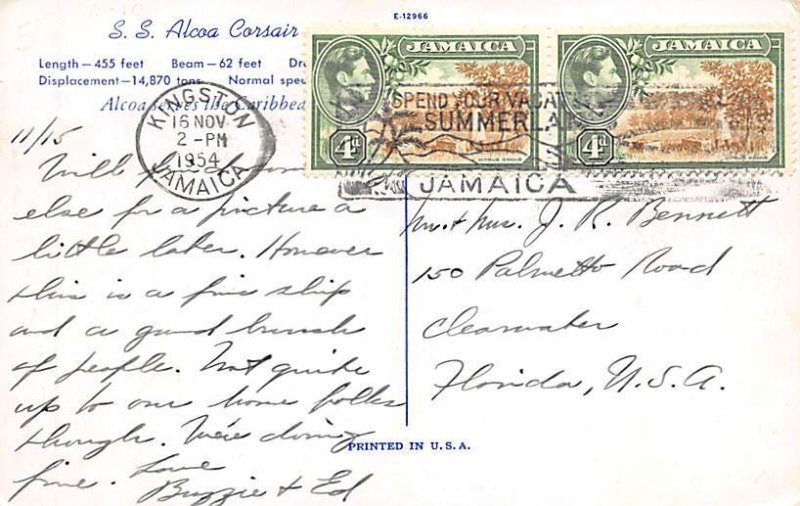 E-12966
S. S. Alcoa Corsair
Length—455 feet Beam—62 feet
Displacement—14,870 tons Normal
Alcoa serves the Caribbea
JAMAICA JAMAICA
4d 4d
CITRUS GROVE
KINGSTON
16 NOV.
2 - PM
1954
JAMAICA
SPEND YOUR
SUMMERLAN
JAMAICA
11/15
Will
else for a picture a
little later. However
this is a fine ship
and a grand bunch
of people. Not quite
up to our home folks
though. We're doing
fine. Love
Buzzie & Ed
Mr. & Mrs. J. R. Bennett
150 Palmetto Road
Clearwater
Florida, U.S.A.
PRINTED IN U.S.A.